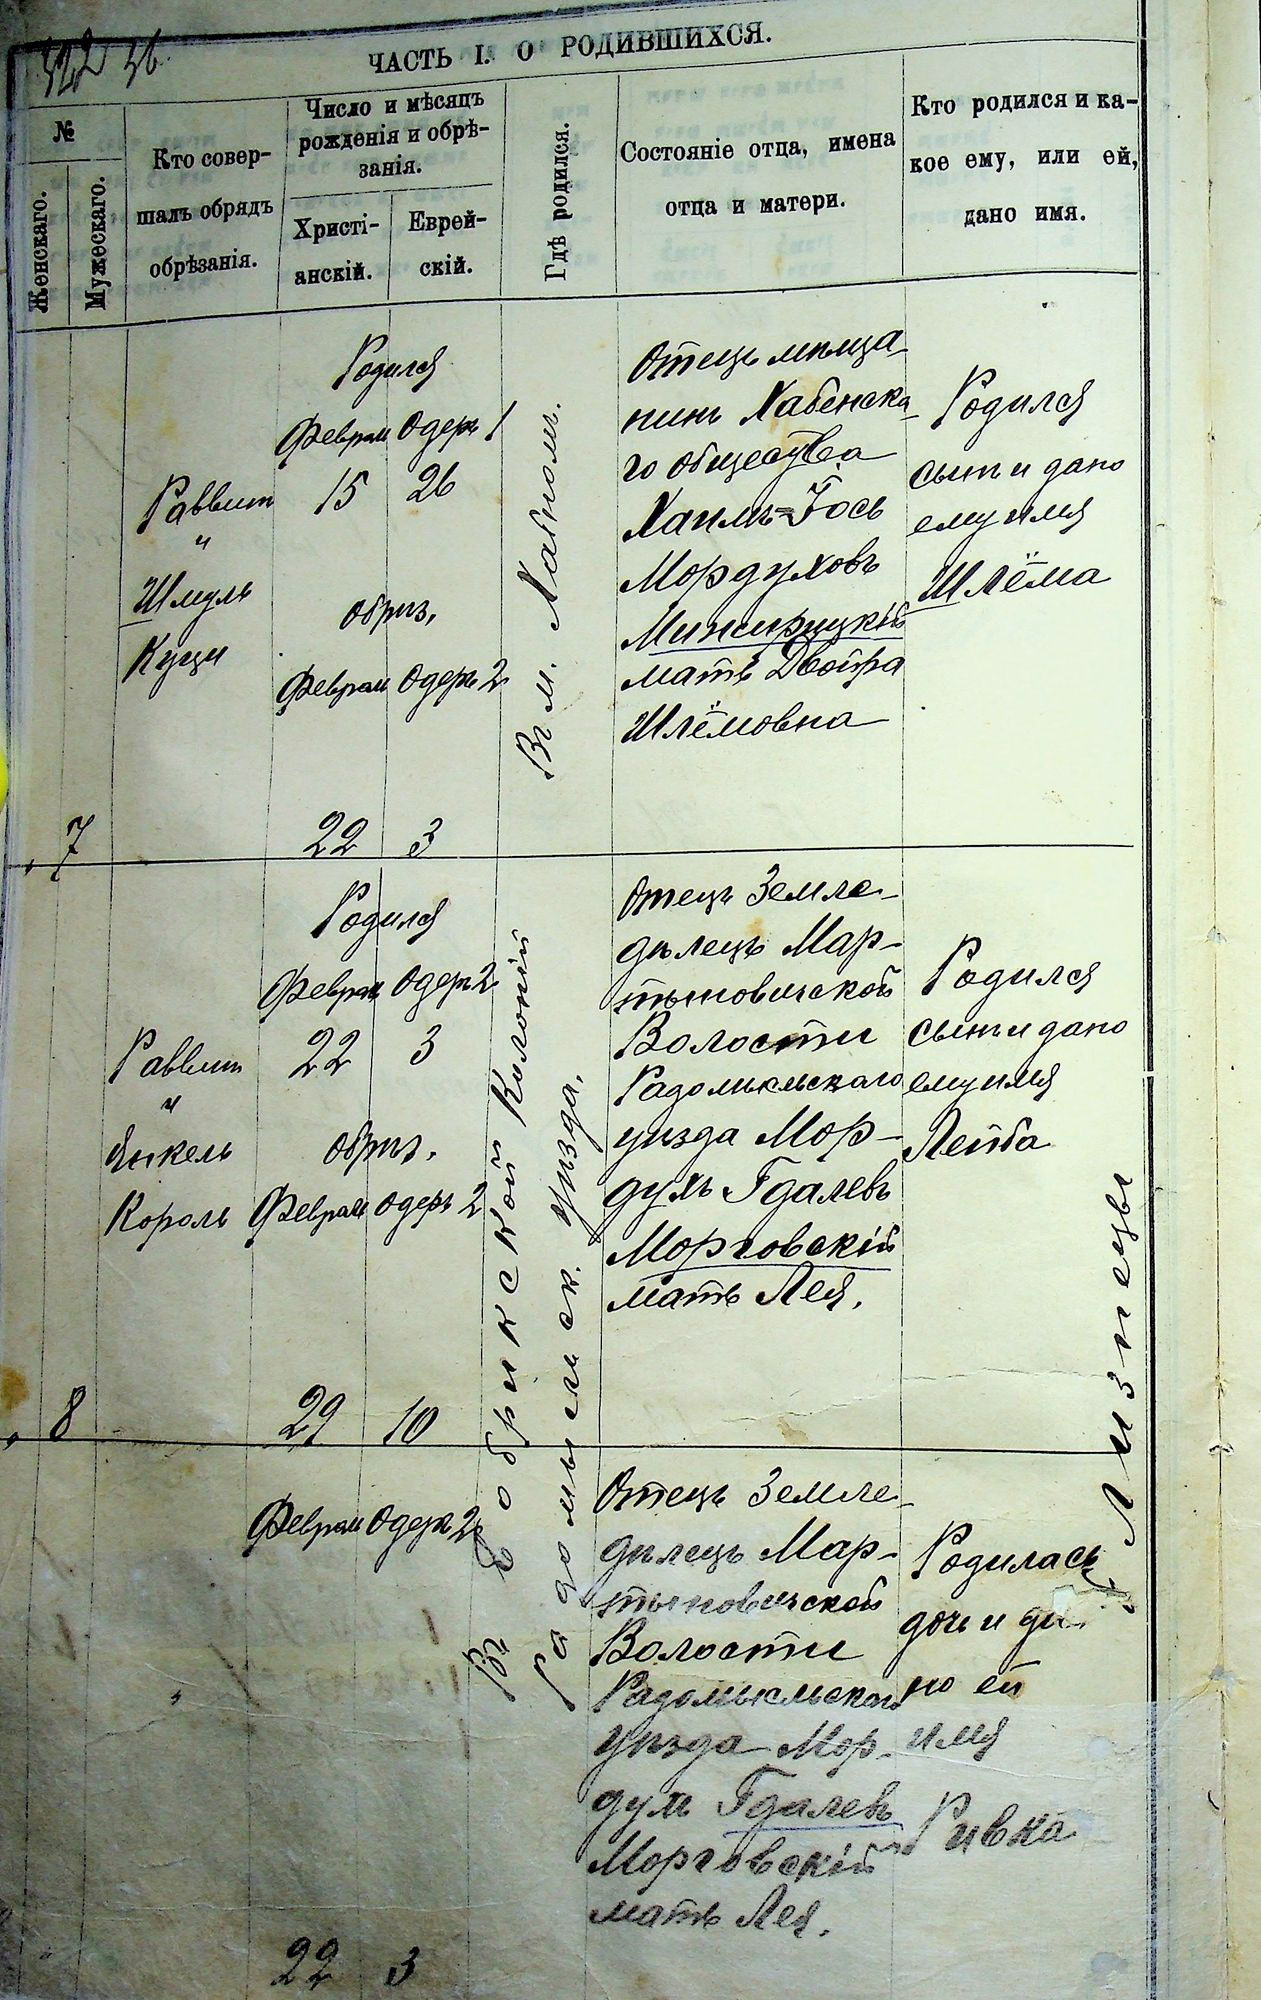 322 36
ЧАСТЬ I. О РОДИВШИХСЯ.
№
Женскаго.
Мужескаго.
Кто совер-
шалъ обрядъ
обрѣзанія.
Число и мѣсяцъ
рожденія и обрѣ-
занія.
Христі-
анскій.
Еврей-
скій.
Гдѣ родился.
Состояніе отца, имена
отца и матери.
Кто родился и ка-
кое ему, или ей,
дано имя.
7
Раввин
"
Шмуль
Куци
Родился
Феврал Одеръ 1
15 26
обрѣз.
Феврал Одеръ 2
22 3
Въ м. Хабном.
Отецъ мѣща-
нинъ Хабенска-
го общества
Хаимъ=Іось
Мордуховъ
Межирицкій
мать Двойра
Шлёмовна
Родился
сынъ и дано
ему имя
Шлёма
8
Раввин
"
Янкель
Король
Родился
Феврал Одеръ 2
22 3
обрѣз.
Феврал Одеръ 2
29 10
Отецъ Земле-
дѣлецъ Мар-
тыновичской
Волости
Радомысльскаго
уѣзда Мор-
духъ Гдалевъ
Морговскій
мать Лея.
Родился
сынъ и дано
ему имя
Лейба
Въ Бобрикской Колоніи
Радомысльск. уѣзда.
Феврал Одеръ 2
22 3
Отецъ Земле-
дѣлецъ Мар-
тыновичской
Волости
Радомысльскаго
уѣзда Мор-
духъ Гдалевъ
Морговскій
мать Лея.
Родилась
дочь и да-
но ей
имя
Ривка
Близнецы